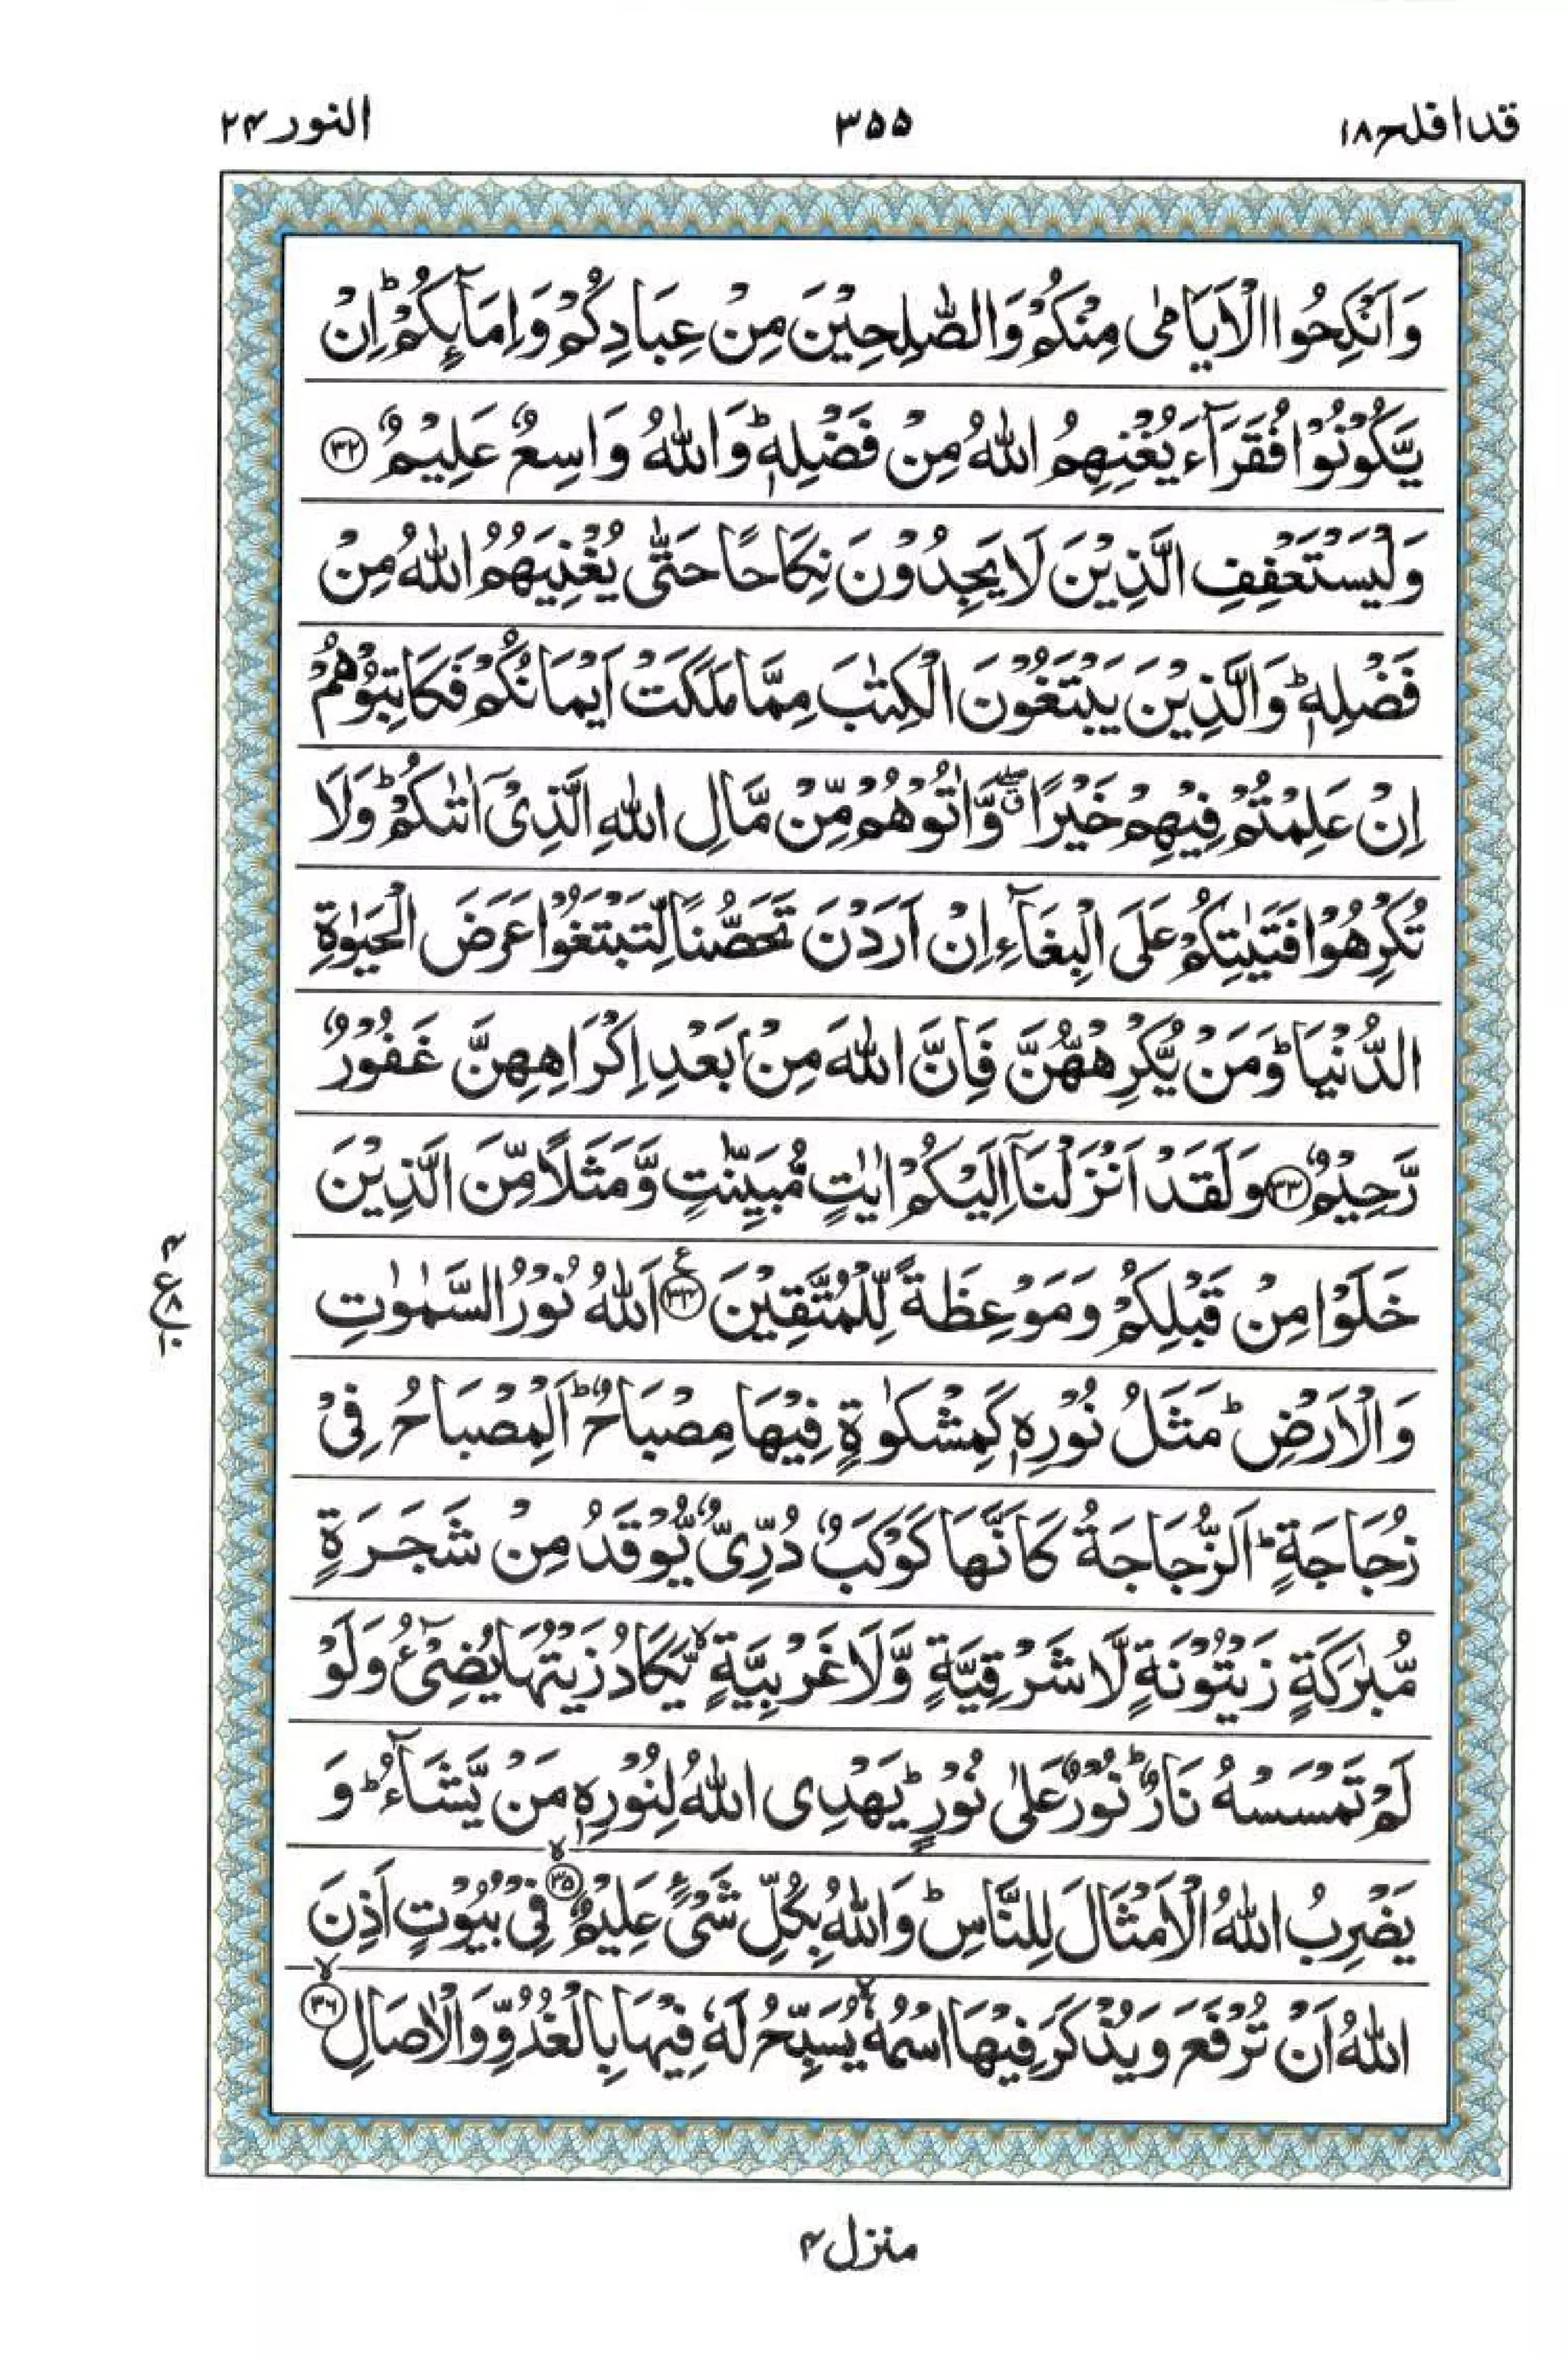 قد افلح ١٨ ٣٥٥ النور ٢٤
وَاَنْكِحُوا الْاَيَامٰى مِنْكُمْ وَالصّٰلِحِيْنَ مِنْ عِبَادِكُمْ وَاِمَآئِكُمْ ؕ اِنْ
يَّكُوْنُوْا فُقَرَآءَ يُغْنِهِمُ اللّٰهُ مِنْ فَضْلِهٖ ؕ وَاللّٰهُ وَاسِعٌ عَلِيْمٌ ﴿٣٢﴾
وَلْيَسْتَعْفِفِ الَّذِيْنَ لَا يَجِدُوْنَ نِكَاحًا حَتّٰى يُغْنِيَهُمُ اللّٰهُ مِنْ
فَضْلِهٖ ؕ وَالَّذِيْنَ يَبْتَغُوْنَ الْكِتٰبَ مِمَّا مَلَكَتْ اَيْمَانُكُمْ فَكَاتِبُوْهُمْ
اِنْ عَلِمْتُمْ فِيْهِمْ خَيْرًا ۖق وَّاٰتُوْهُمْ مِّنْ مَّالِ اللّٰهِ الَّذِيْۤ اٰتٰىكُمْ ؕ وَلَا
تُكْرِهُوْا فَتَيٰتِكُمْ عَلَى الْبِغَآءِ اِنْ اَرَدْنَ تَحَصُّنًا لِّتَبْتَغُوْا عَرَضَ الْحَيٰوةِ
الدُّنْيَا ؕ وَمَنْ يُّكْرِهْهُّنَّ فَاِنَّ اللّٰهَ مِنْۢ بَعْدِ اِكْرَاهِهِنَّ غَفُوْرٌ
رَّحِيْمٌ ﴿٣٣﴾ وَلَقَدْ اَنْزَلْنَاۤ اِلَيْكُمْ اٰيٰتٍ مُّبَيِّنٰتٍ وَّمَثَلًا مِّنَ الَّذِيْنَ
خَلَوْا مِنْ قَبْلِكُمْ وَمَوْعِظَةً لِّلْمُتَّقِيْنَ ﴿٣٤﴾ ع اَللّٰهُ نُوْرُ السَّمٰوٰتِ
٤ ع ٨ ١٠
وَالْاَرْضِ ؕ مَثَلُ نُوْرِهٖ كَمِشْكٰوةٍ فِيْهَا مِصْبَاحٌ ؕ اَلْمِصْبَاحُ فِيْ
زُجَاجَةٍ ؕ اَلزُّجَاجَةُ كَاَنَّهَا كَوْكَبٌ دُرِّيٌّ يُّوْقَدُ مِنْ شَجَرَةٍ
مُّبٰرَكَةٍ زَيْتُوْنَةٍ لَّا شَرْقِيَّةٍ وَّلَا غَرْبِيَّةٍ ۙ يَّكَادُ زَيْتُهَا يُضِيْٓءُ وَلَوْ
لَمْ تَمْسَسْهُ نَارٌ ؕ نُوْرٌ عَلٰى نُوْرٍ ؕ يَهْدِى اللّٰهُ لِنُوْرِهٖ مَنْ يَّشَآءُ ؕ وَ
يَضْرِبُ اللّٰهُ الْاَمْثَالَ لِلنَّاسِ ؕ وَاللّٰهُ بِكُلِّ شَيْءٍ عَلِيْمٌ ﴿٣٥﴾ ۙ فِيْ بُيُوْتٍ اَذِنَ
اللّٰهُ اَنْ تُرْفَعَ وَيُذْكَرَ فِيْهَا اسْمُهٗ ۙ يُسَبِّحُ لَهٗ فِيْهَا بِالْغُدُوِّ وَالْاٰصَالِ ﴿٣٦﴾ ۙ
منزل ٤